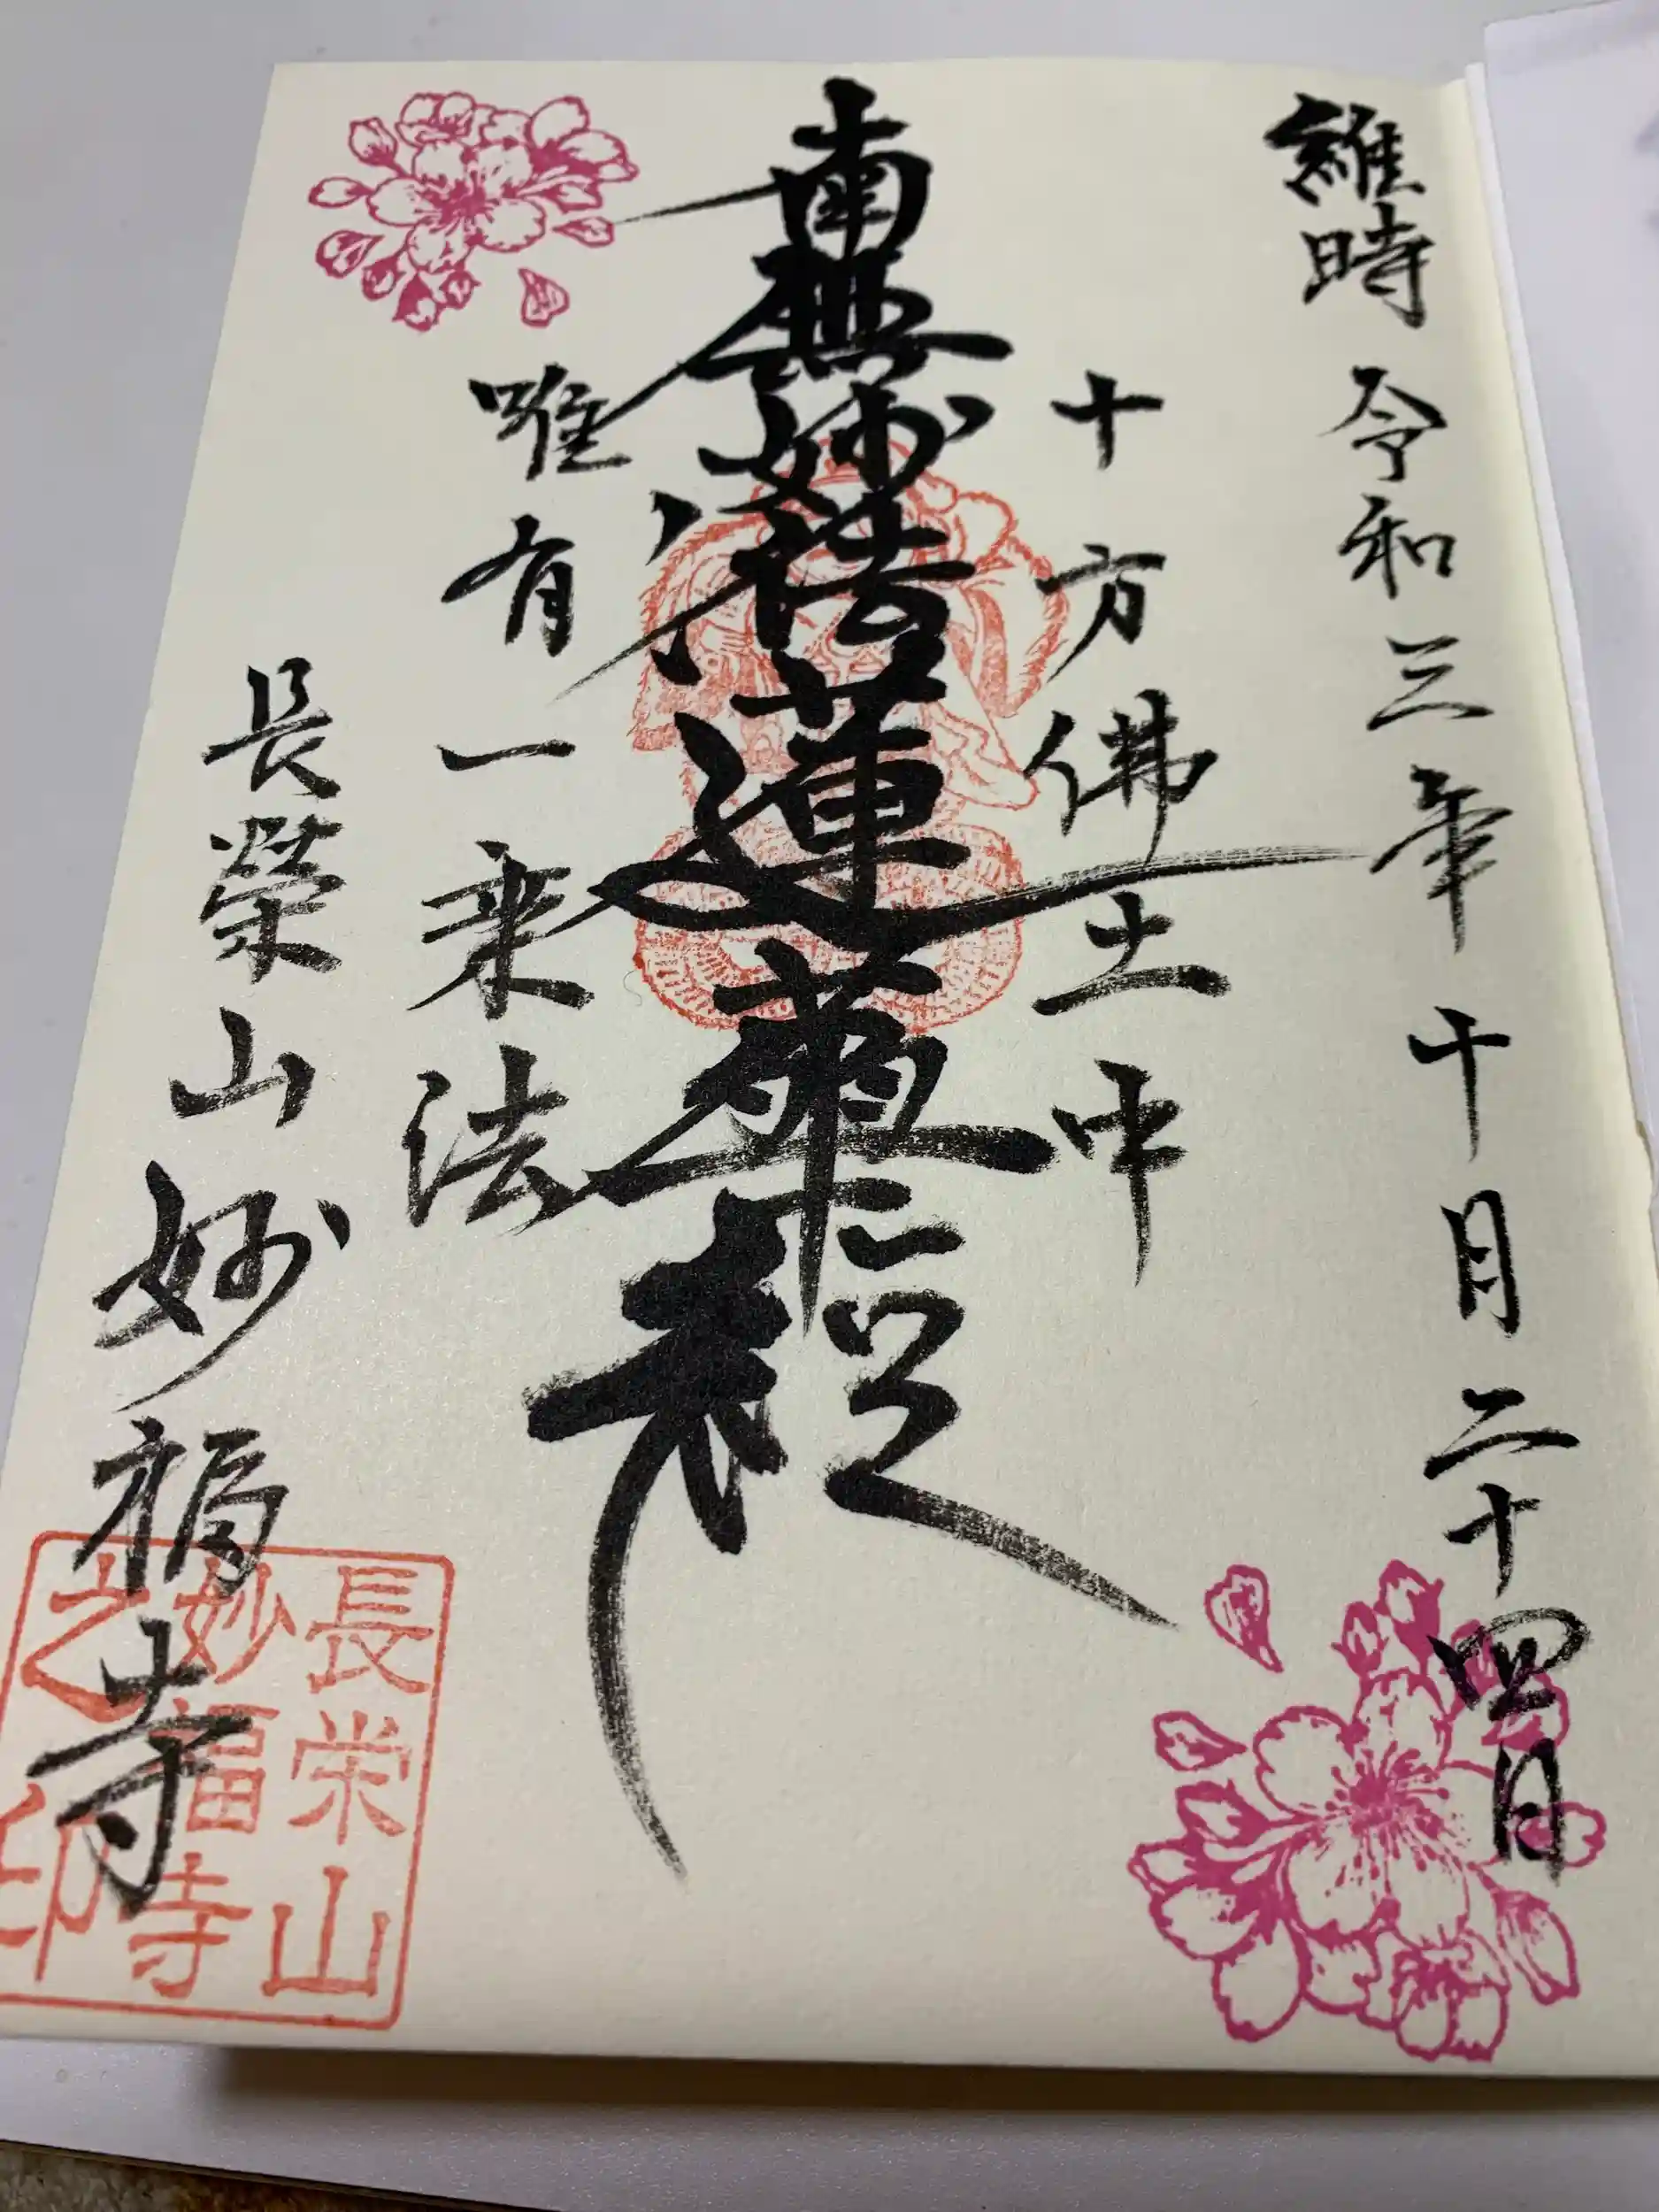 維時 令和三年 十月二十四日
十方佛土中
南無妙法蓮華経
唯有一乗法
長榮山妙福寺
長栄山
妙福寺
之印